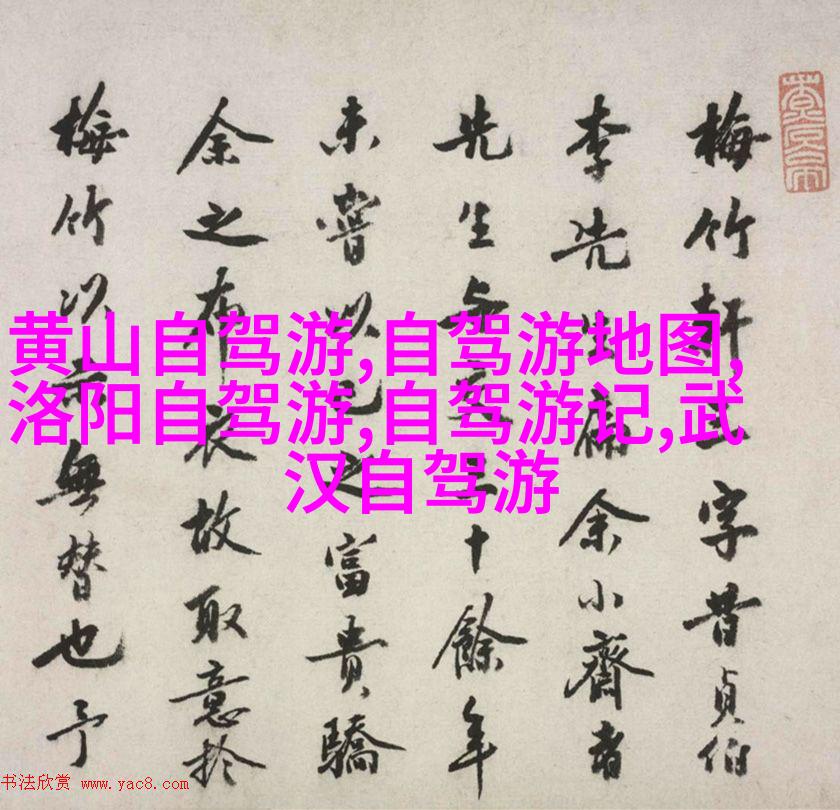 黄山自驾游,自驾游地图,
洛阳自驾游,自驾游记,武
汉自驾游
梅竹軒三字昔貞伯
李先生扁余小齋者
先生与三十餘年
未嘗以己之富貴驕
余之布衣故取意於
梅竹以示無替也予
书法欣赏 www.yac8.com